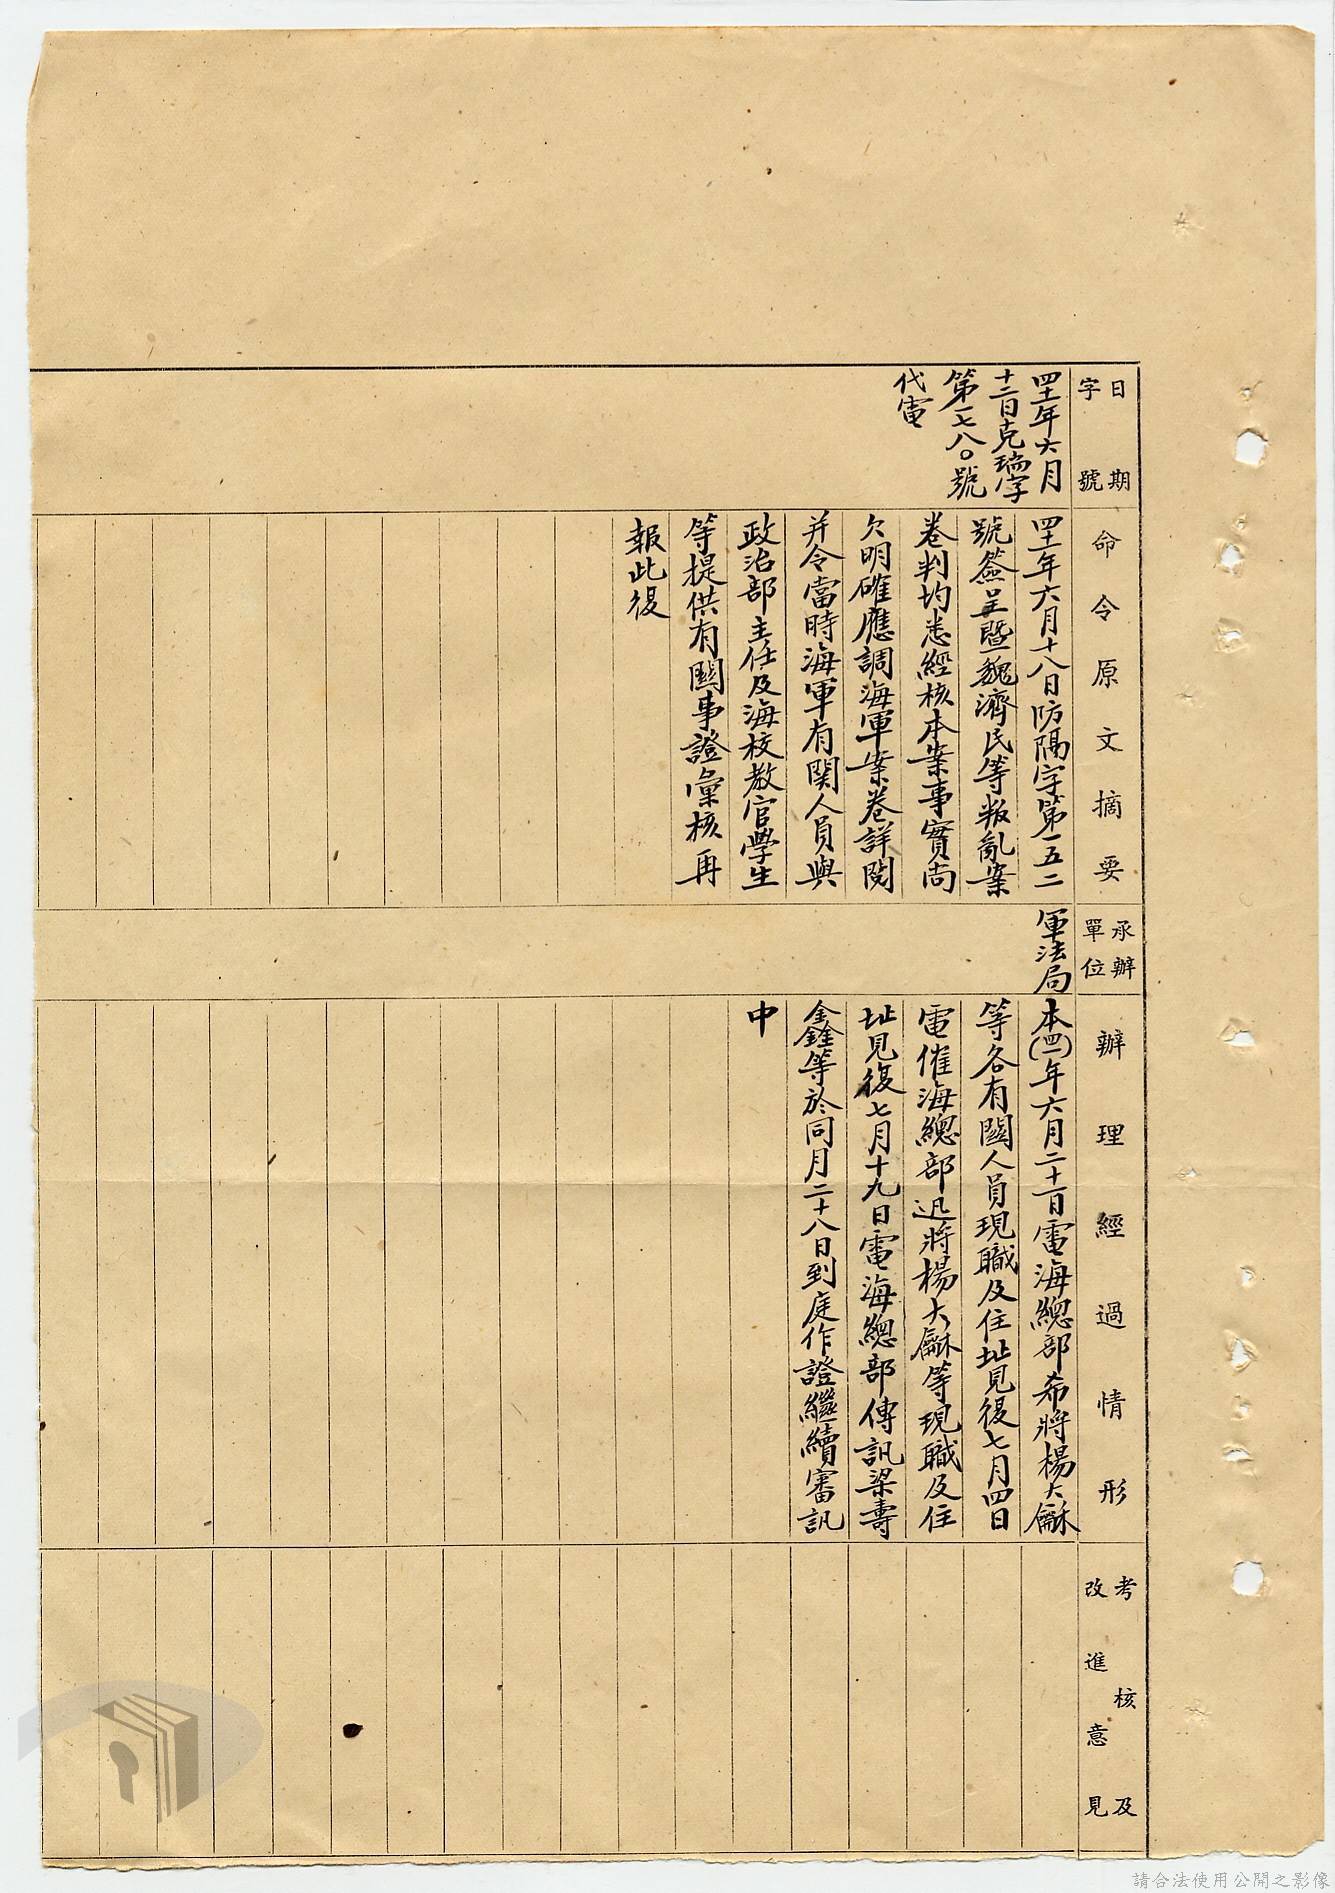 日期
字號
四十一年六月
十二日克瑞字
第一七八〇號
代電
命令原文摘要
四十一年六月十八日防隔字第一五二
號簽呈暨魏濟民等叛亂案
卷判均悉經核本案事實尚
欠明確應調海軍案卷詳閱
并令當時海軍有関人員與
政治部主任及海校教官學生
等提供有關事證彙核再
報此復
承辦
單位
軍法局
辦理經過情形
本(四一)年六月二十一日電海總部希將楊大龢
等各有關人員現職及住址見復七月四日
電催海總部迅將楊大龢等現職及住
址見復七月十九日電海總部傳訊梁壽
鑫等於同月二十八日到庭作證繼續審訊
中
考核及
改進意見
請合法使用公開之影像